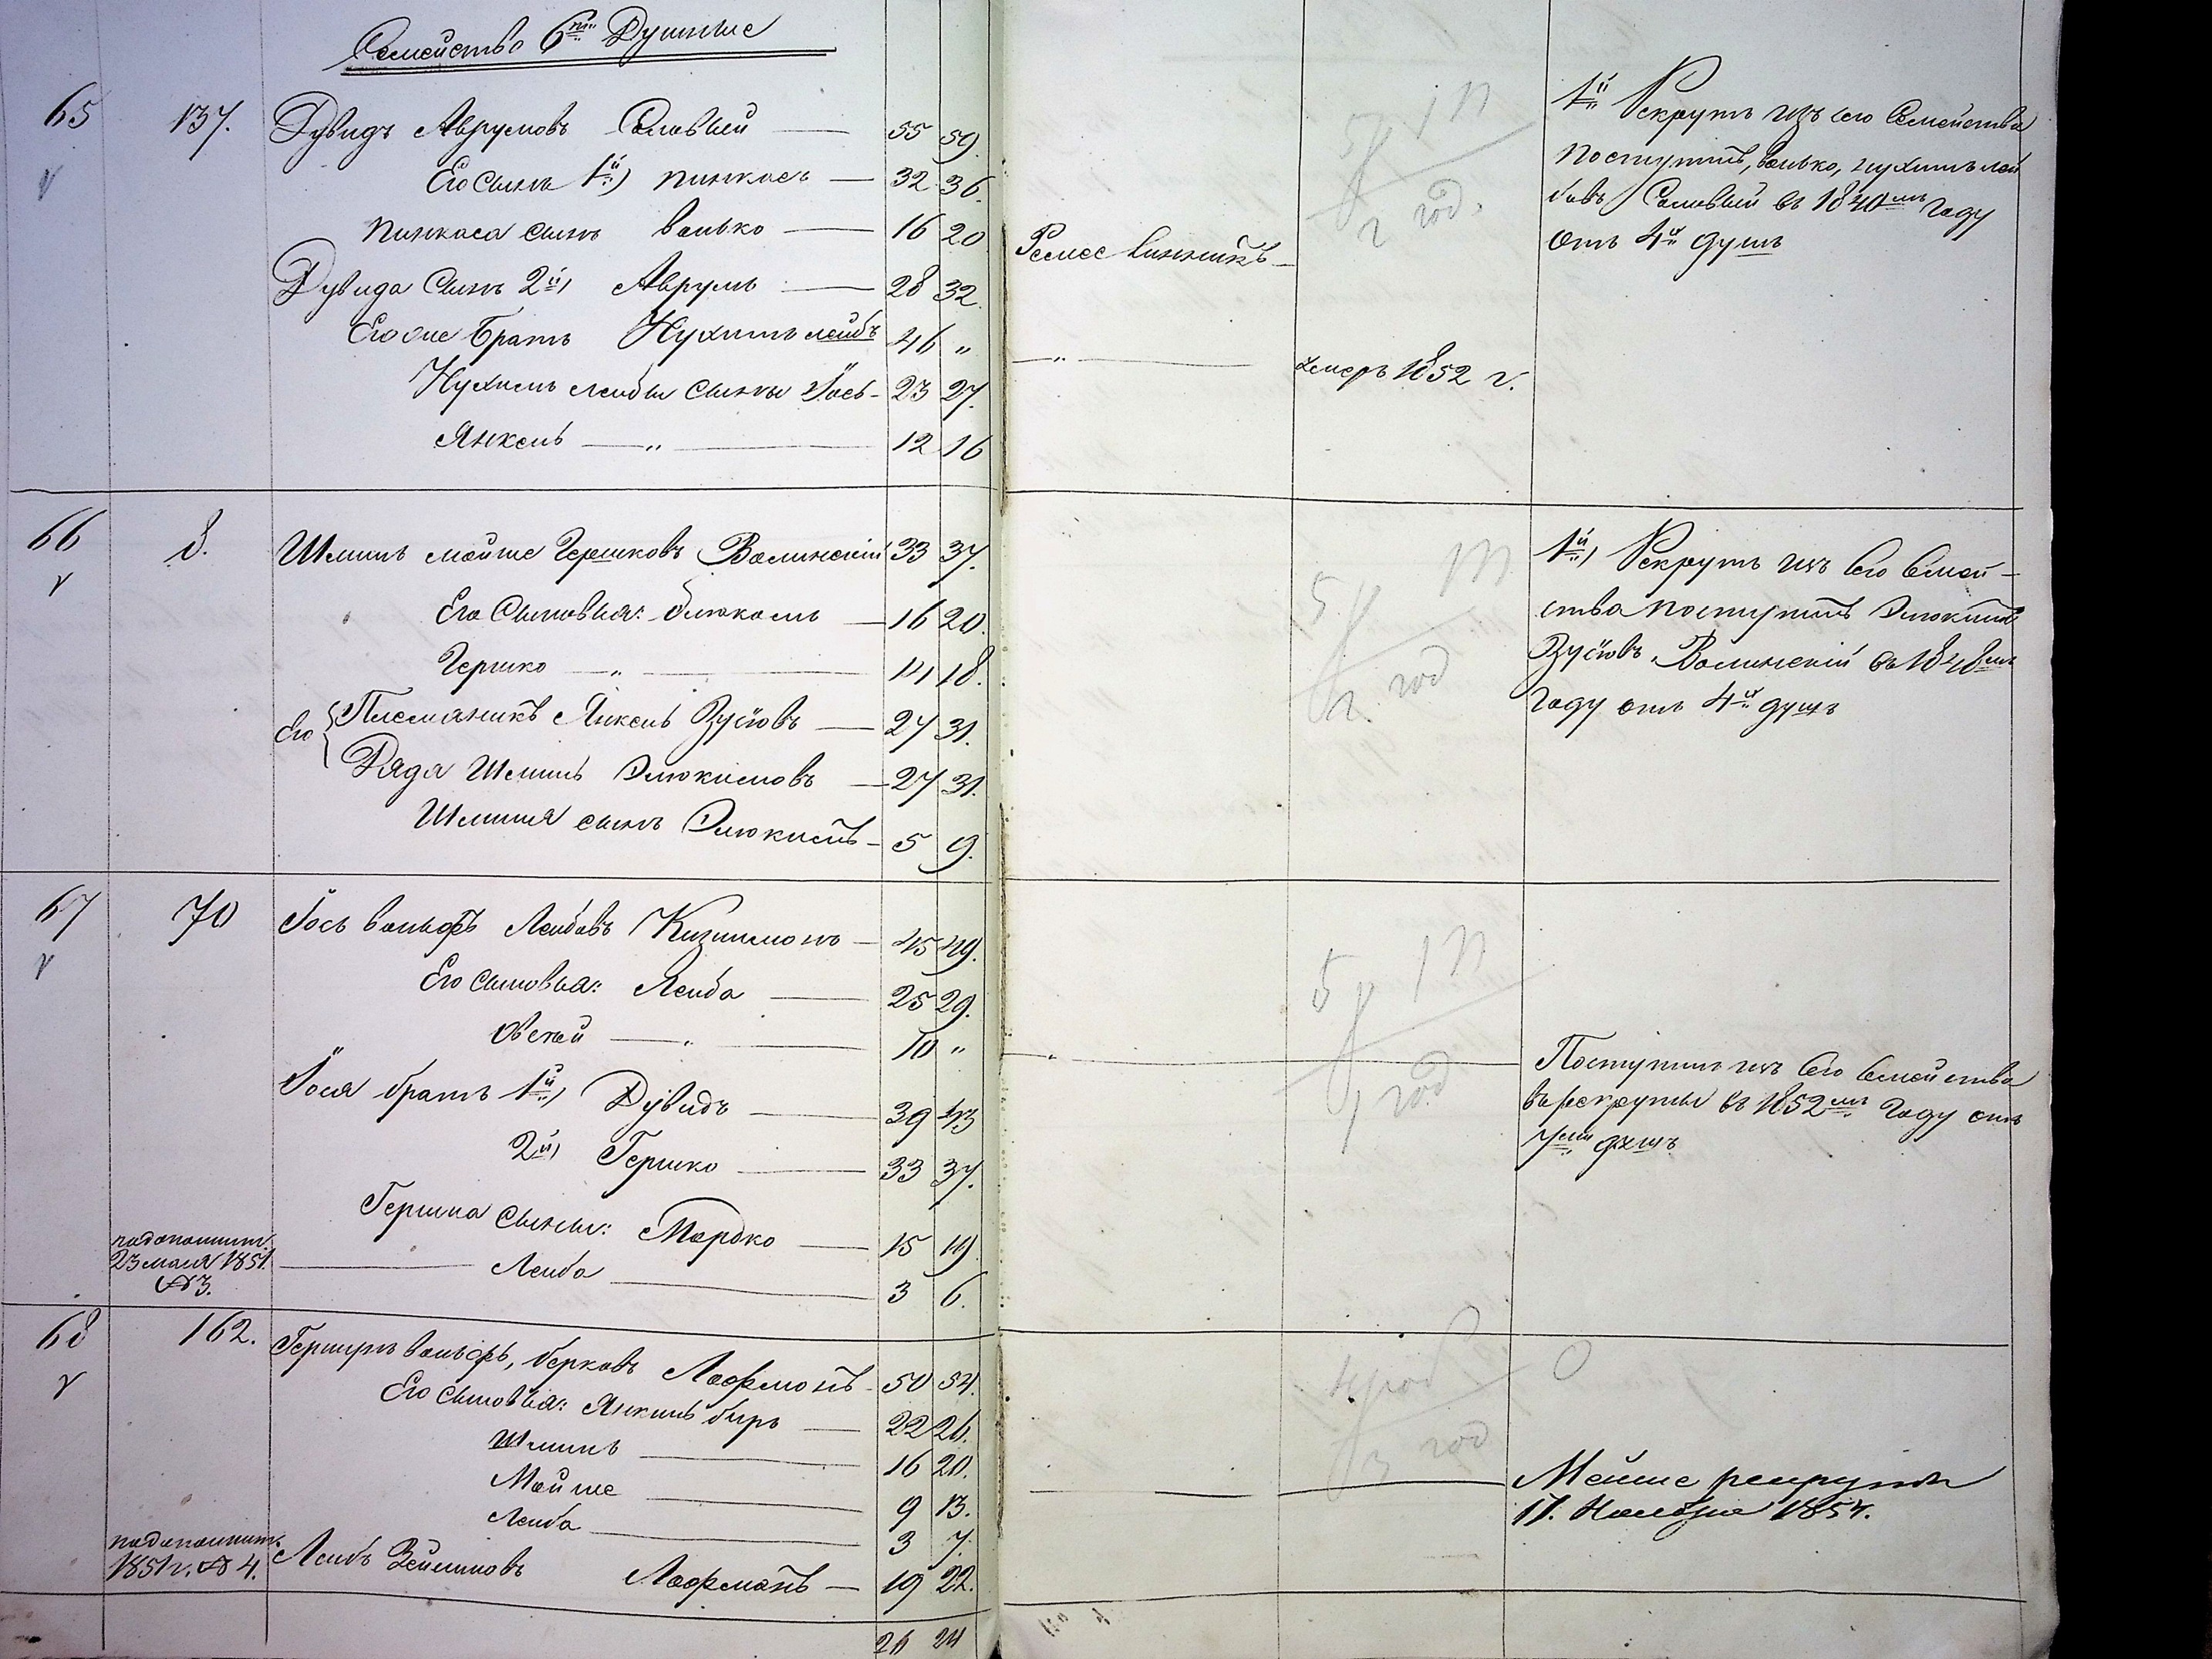 Семейство 6ти Душные
65 137. Дувидъ Аврумовъ Соловьей — 55 59.
Его Сынъ 1й) Пинкасъ — 32 36.
Пинкаса сынъ Волько — 16 20
Дувида Сынъ 2й) Аврумъ — 28 32.
Его же Братъ Нухимъ лейбъ 46 „
Нухимъ лейбы сыны Іось — 23 27.
Янкель — „ — 12 16
Ремес
умеръ 1852 г.
1й Рекрутъ изъ сего Семейства
поступилъ, Волько, нухимъ лей
бовъ Соловьей въ 1840мъ Году
отъ 4хъ душъ
5 1 п
2 год.
66 8. Шмиль мойше Гершковъ Волинскій 33 37.
Его Сыновья: — 16 20.
Гершко — „ — 14 18.
Его Племяникъ Янкель Зусіовъ — 27 31.
Дядя Шмиль Элюкимовъ — 27 31.
Шмиля сынъ Элюкимъ — 5 9.
1й) Рекрутъ изъ сего Семей-
ства поступилъ Элюкимъ
Зусіовъ Волинскій въ 1848мъ
Году отъ 4хъ душъ
5
2. год
67 70 Іось вольфъ Лейбовъ — 45 49.
Его сыновья: Лейба — 25 29.
Овсей — „ — 10 „
Іося братъ 1й) Дувидъ — 39 43
2й) Гершко — 33 37.
Гершка Сыны: Мордко — 15 19
23 мая 1851
№ 3.
Лейба — 3 6.
5 1 п
1 год
Поступилъ изъ сего Семейства
въ рекруты въ 1852мъ Году отъ
7ми душъ
68 162. вольфъ, берковъ Лафмонъ 50 54.
Его сыновья: Янкель беръ — 22 26.
Шмиль — 16 20.
Мойше — 9 13.
Лейба — 3 7.
1851 г. № 4. Лейбъ Зейликовъ Лафманъ — 19 22.
0
3 год
Мойше рекрутъ
17. Ноября 1854.
26 24